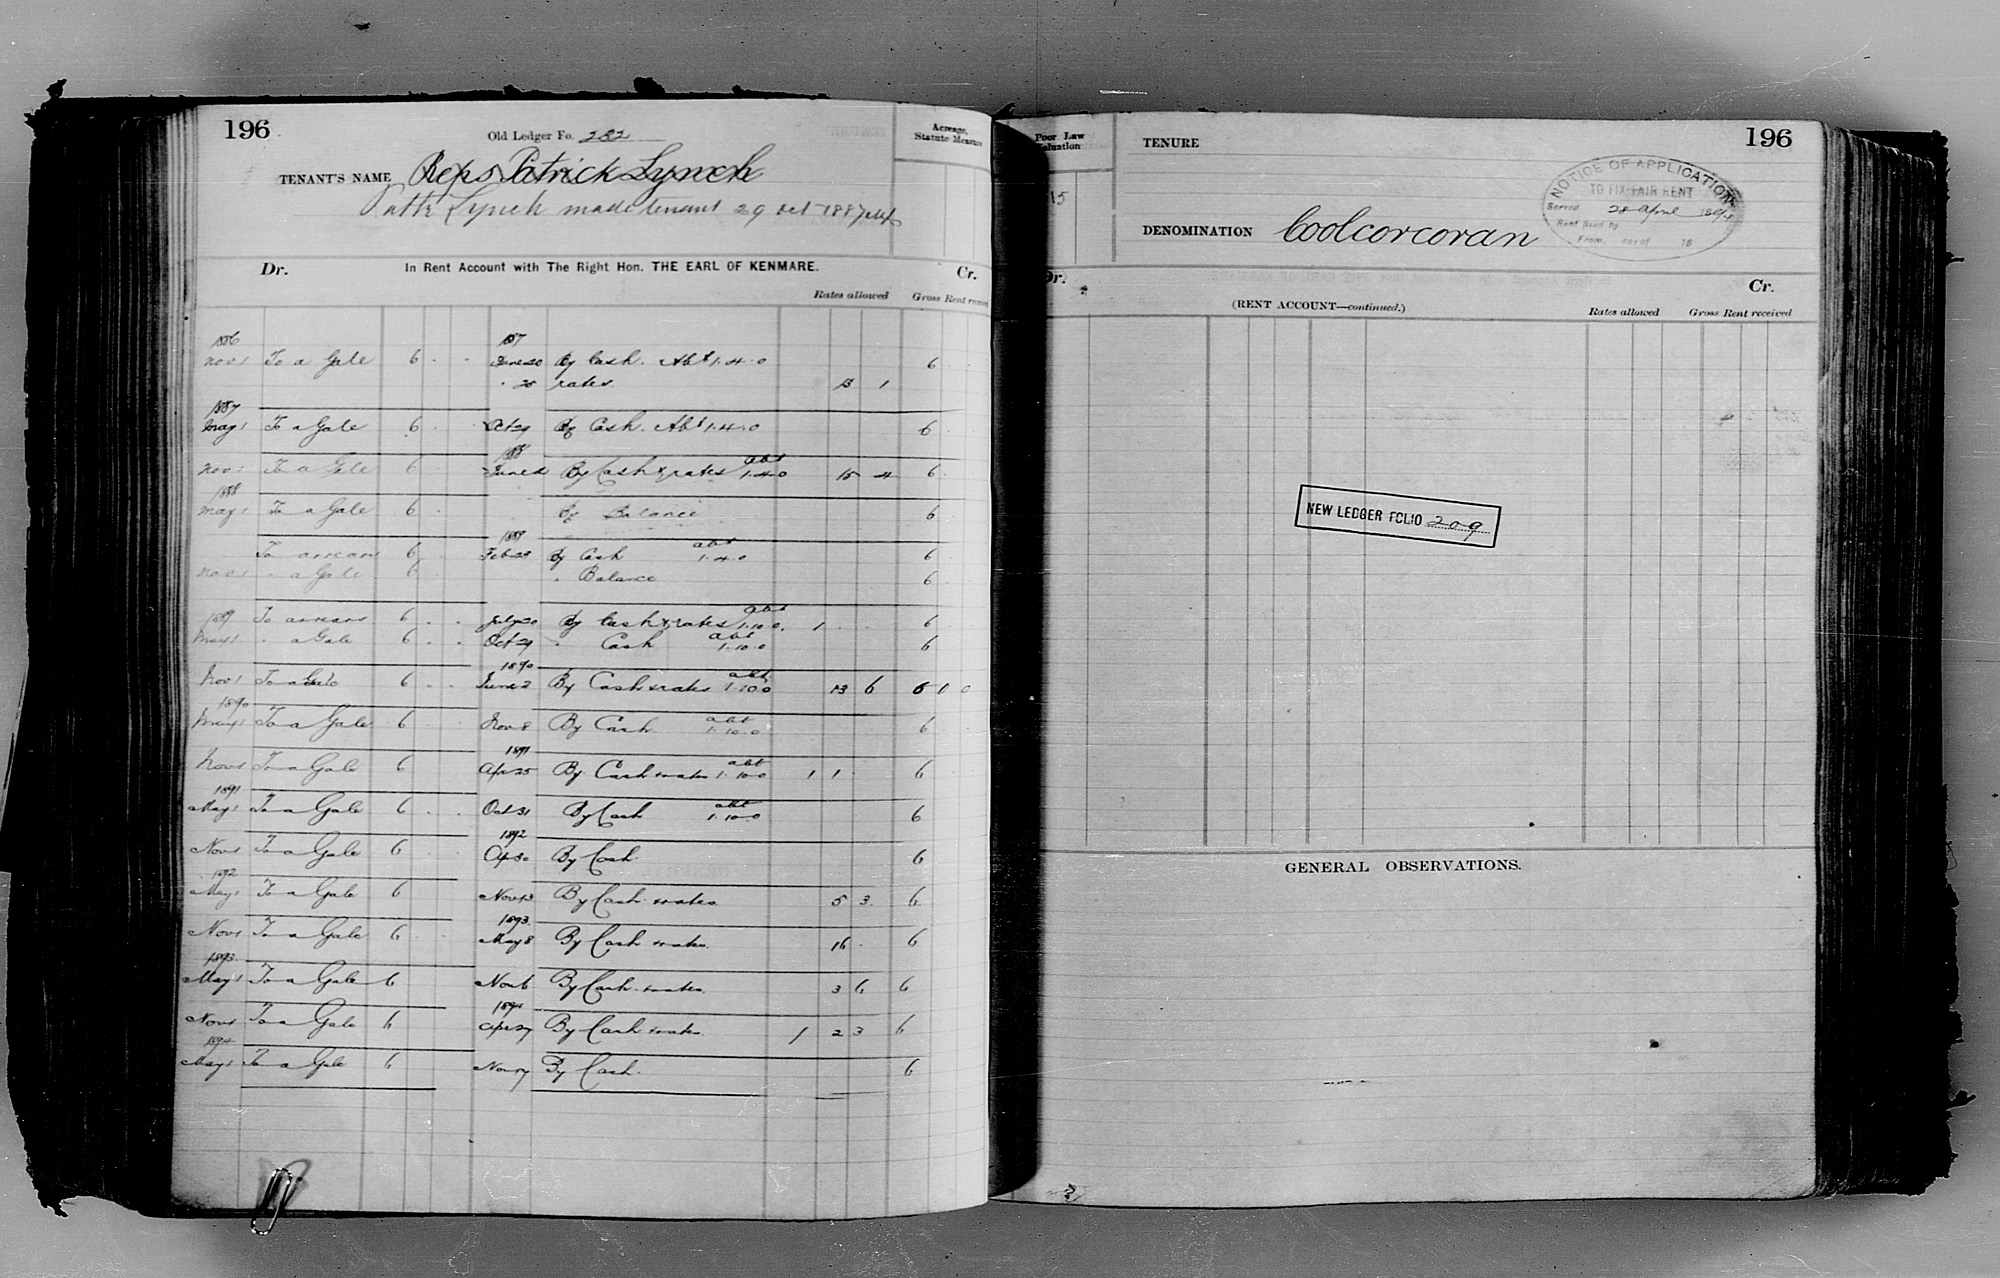 196
Old Ledger Fo. 282
Acreage, Statute Measure
TENANT'S NAME Reps Patrick Lynch
Patk Lynch made tenant 29 Oct 1887
Dr. In Rent Account with The Right Hon. THE EARL OF KENMARE. Cr.
Rates allowed Gross Rent received
1886 1887
Nov 1 To a Gale 6 . . June 20 By Cash. Abt 1.4.0 6
" 25 rates 13 1
1887
May 1 To a Gale 6 . Oct 29 By Cash. Abt 1.4.0 6
1888 abt
Nov 1 To a Gale 6 June 2 By Cash & rates 1.4.0 15 4 6
1888
May 1 To a Gale 6 By Balance 6
1889 abt
To arrears 6 Feb 23 By Cash 1.4.0 6
Nov 1 " a Gale 6 " Balance 6
1889 abt
To arrears 6 . . July 20 By Cash & rates 1.10.0. 1 . . 6
abt
May 1 " a Gale 6 . . Oct 29 " Cash 1.10.0 6
1890 abt
Nov 1 To a Gale 6 . . June 2 By Cash & rates 1.10.0 13 6 6 0 0
1890 abt
May 1 To a Gale 6 Nov 8 By Cash 1.10.0 6
1891 abt
Nov 1 To a Gale 6 Apr 25 By Cash & rates 1.10.0 1 1 6
1891 abt
May 1 To a Gale 6 . . Oct 31 By Cash 1.10.0 6
1892
Nov 1 To a Gale 6 . . Ap 30 By Cash 6
1892
May 1 To a Gale 6 Nov By Cash & rates 5 3 6
1893
Nov 1 To a Gale 6 . . May 8 By Cash & rates 16 . 6
1893
May 1 To a Gale 6 Nov 6 By Cash & rates 3 6 6
1894
Nov 1 To a Gale 6 Apr 27 By Cash & rates 1 2 3 6
1894
May 1 To a Gale 6 Nov By Cash 6
Poor Law Valuation
15
TENURE
196
NOTICE OF APPLICATION
TO FIX FAIR RENT
Served 28 April 1894
Rent fixed by
From day of 18
DENOMINATION Coolcorcoran
Dr. Cr.
(RENT ACCOUNT—continued.)
Rates allowed Gross Rent received
NEW LEDGER FOLIO 209
GENERAL OBSERVATIONS.